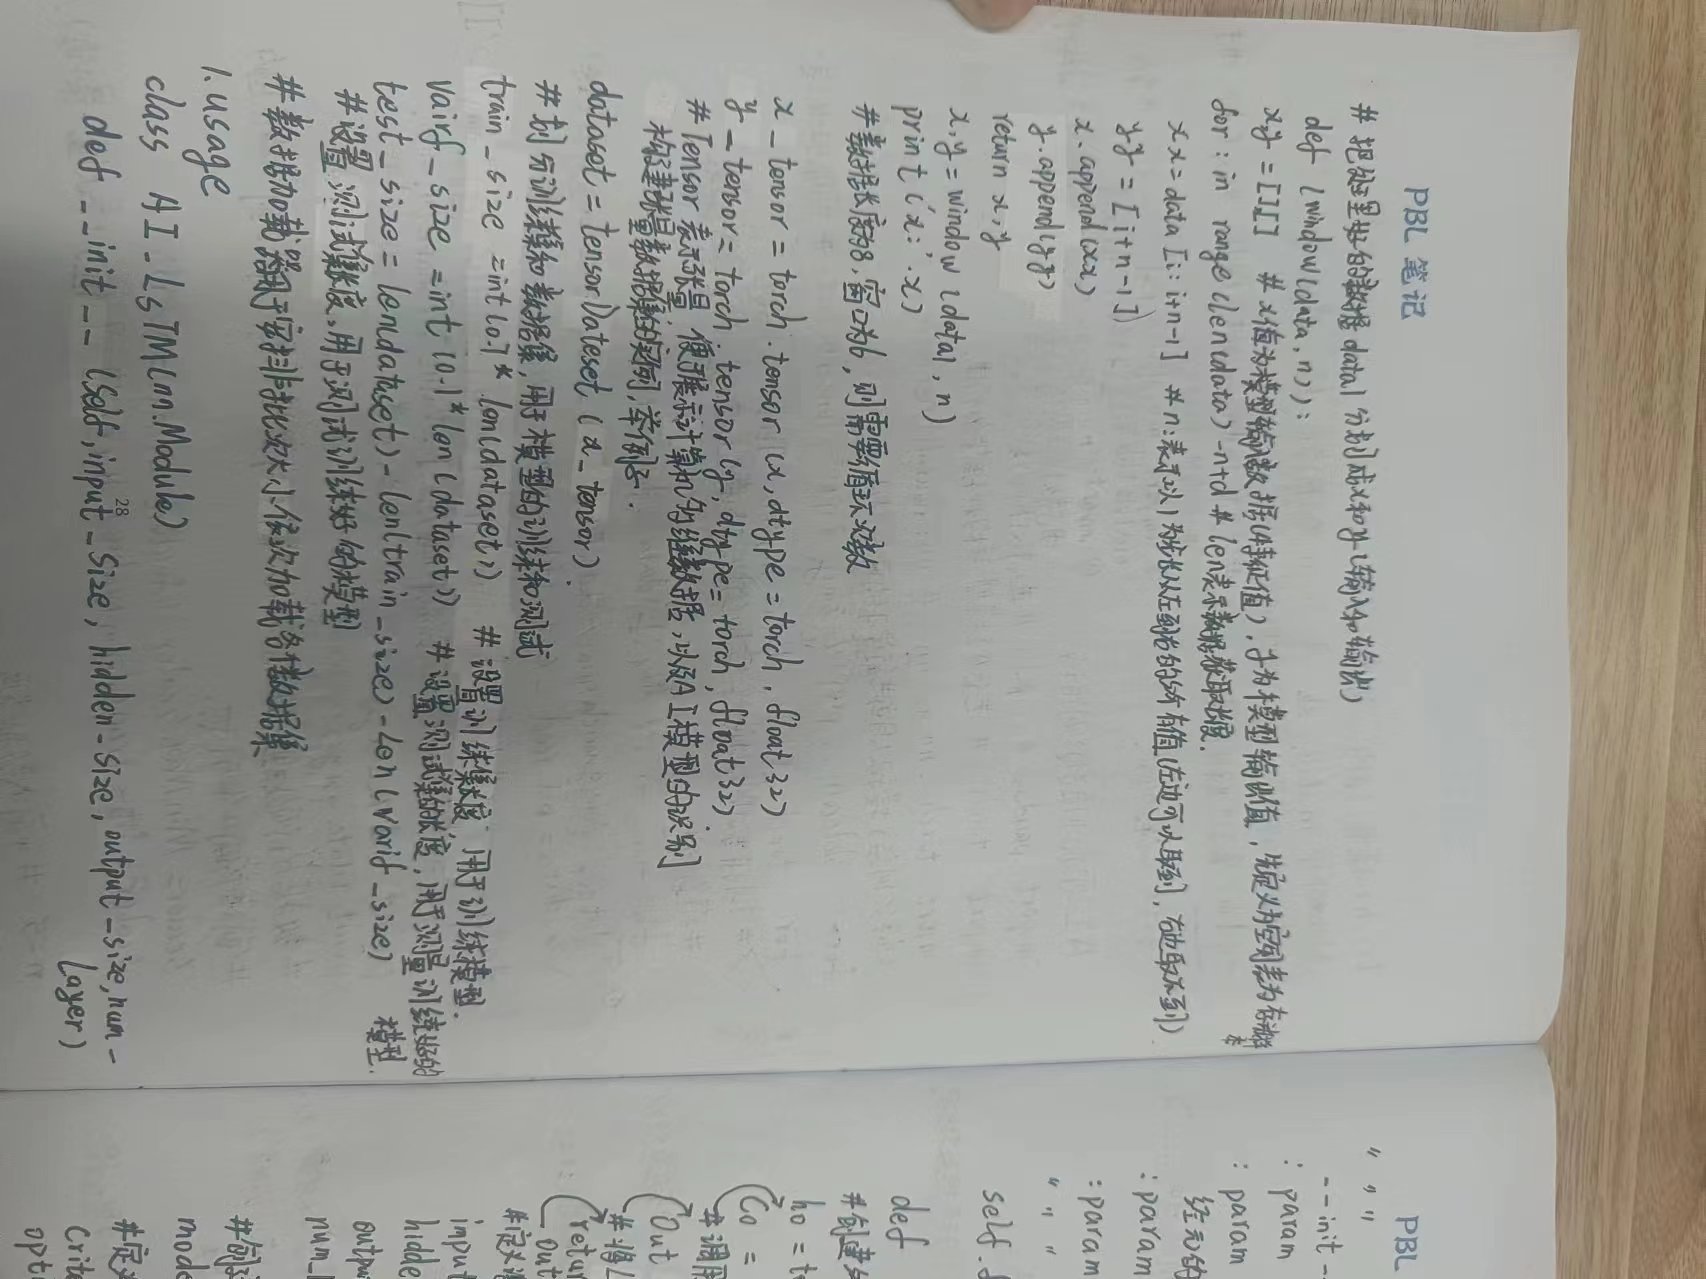 PBL 笔记
# 把处理好的数据 data1 分割成x和y (输入和输出)
def (window(data, n)):
xy = [][] # x值为模型输入数据(特征值), y为模型输出值, 先定义为空列表为存储
for : in range (len(data) -n+d # len表示数据获取长度.
xx = data [i: i+n-1] # n: 表示以1为步长从左到右的所有值(左边可以取到, 右边取不到)
yy = [i+n-1])
x. append (xx)
y. append (yy)
return x, y
x, y = window (data1, n)
print ('x: '. x)
# 数据长度为8, 窗口为6, 则需要循环次数
x_tensor = torch . tensor (x, dtype = torch . float 32)
y_tensor = torch . tensor (y, dtype = torch, float 32)
# Tensor 表示张量, 便于展示计算机的维数据, 以及AI模型的识别
构建张量数据集的实例, 举例子.
dataset = tensorDateset (x_tensor)
# 划分训练集和数据集, 用于模型的训练和测试
train_size = int (0.7* lon(dataset)) # 设置训练集长度, 用于训练模型.
vairf_size = int, (0.1* lon (dataset)) # 设置测试集的长度, 用于测量训练好的
模型.
test_size = (ondataset) - len(train_size) - Lon (varif_size)
# 设置测试集长度, 用于测试训练好的模型
# 数据加载器用于安排批次大小依次加载各种数据集
1. usage
class AI_LSTM(nn.Module)
def __init__ (self, input_size, hidden-size, output-size, num-
28
layer)
PBL
" " "
--init-
: param
: param
: param
: param
" " "
self.
def
# 创建
h0 =
C0 =
# 调用
Out
# 将
return
out
# 定义
input
hidde
outpu
num_
# 创
mode
# 定义
crite
opti